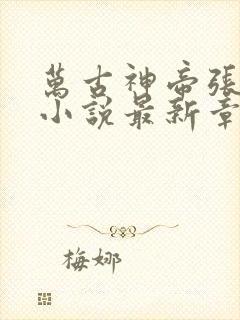 萬古神帝張
小說最新章
梅娜